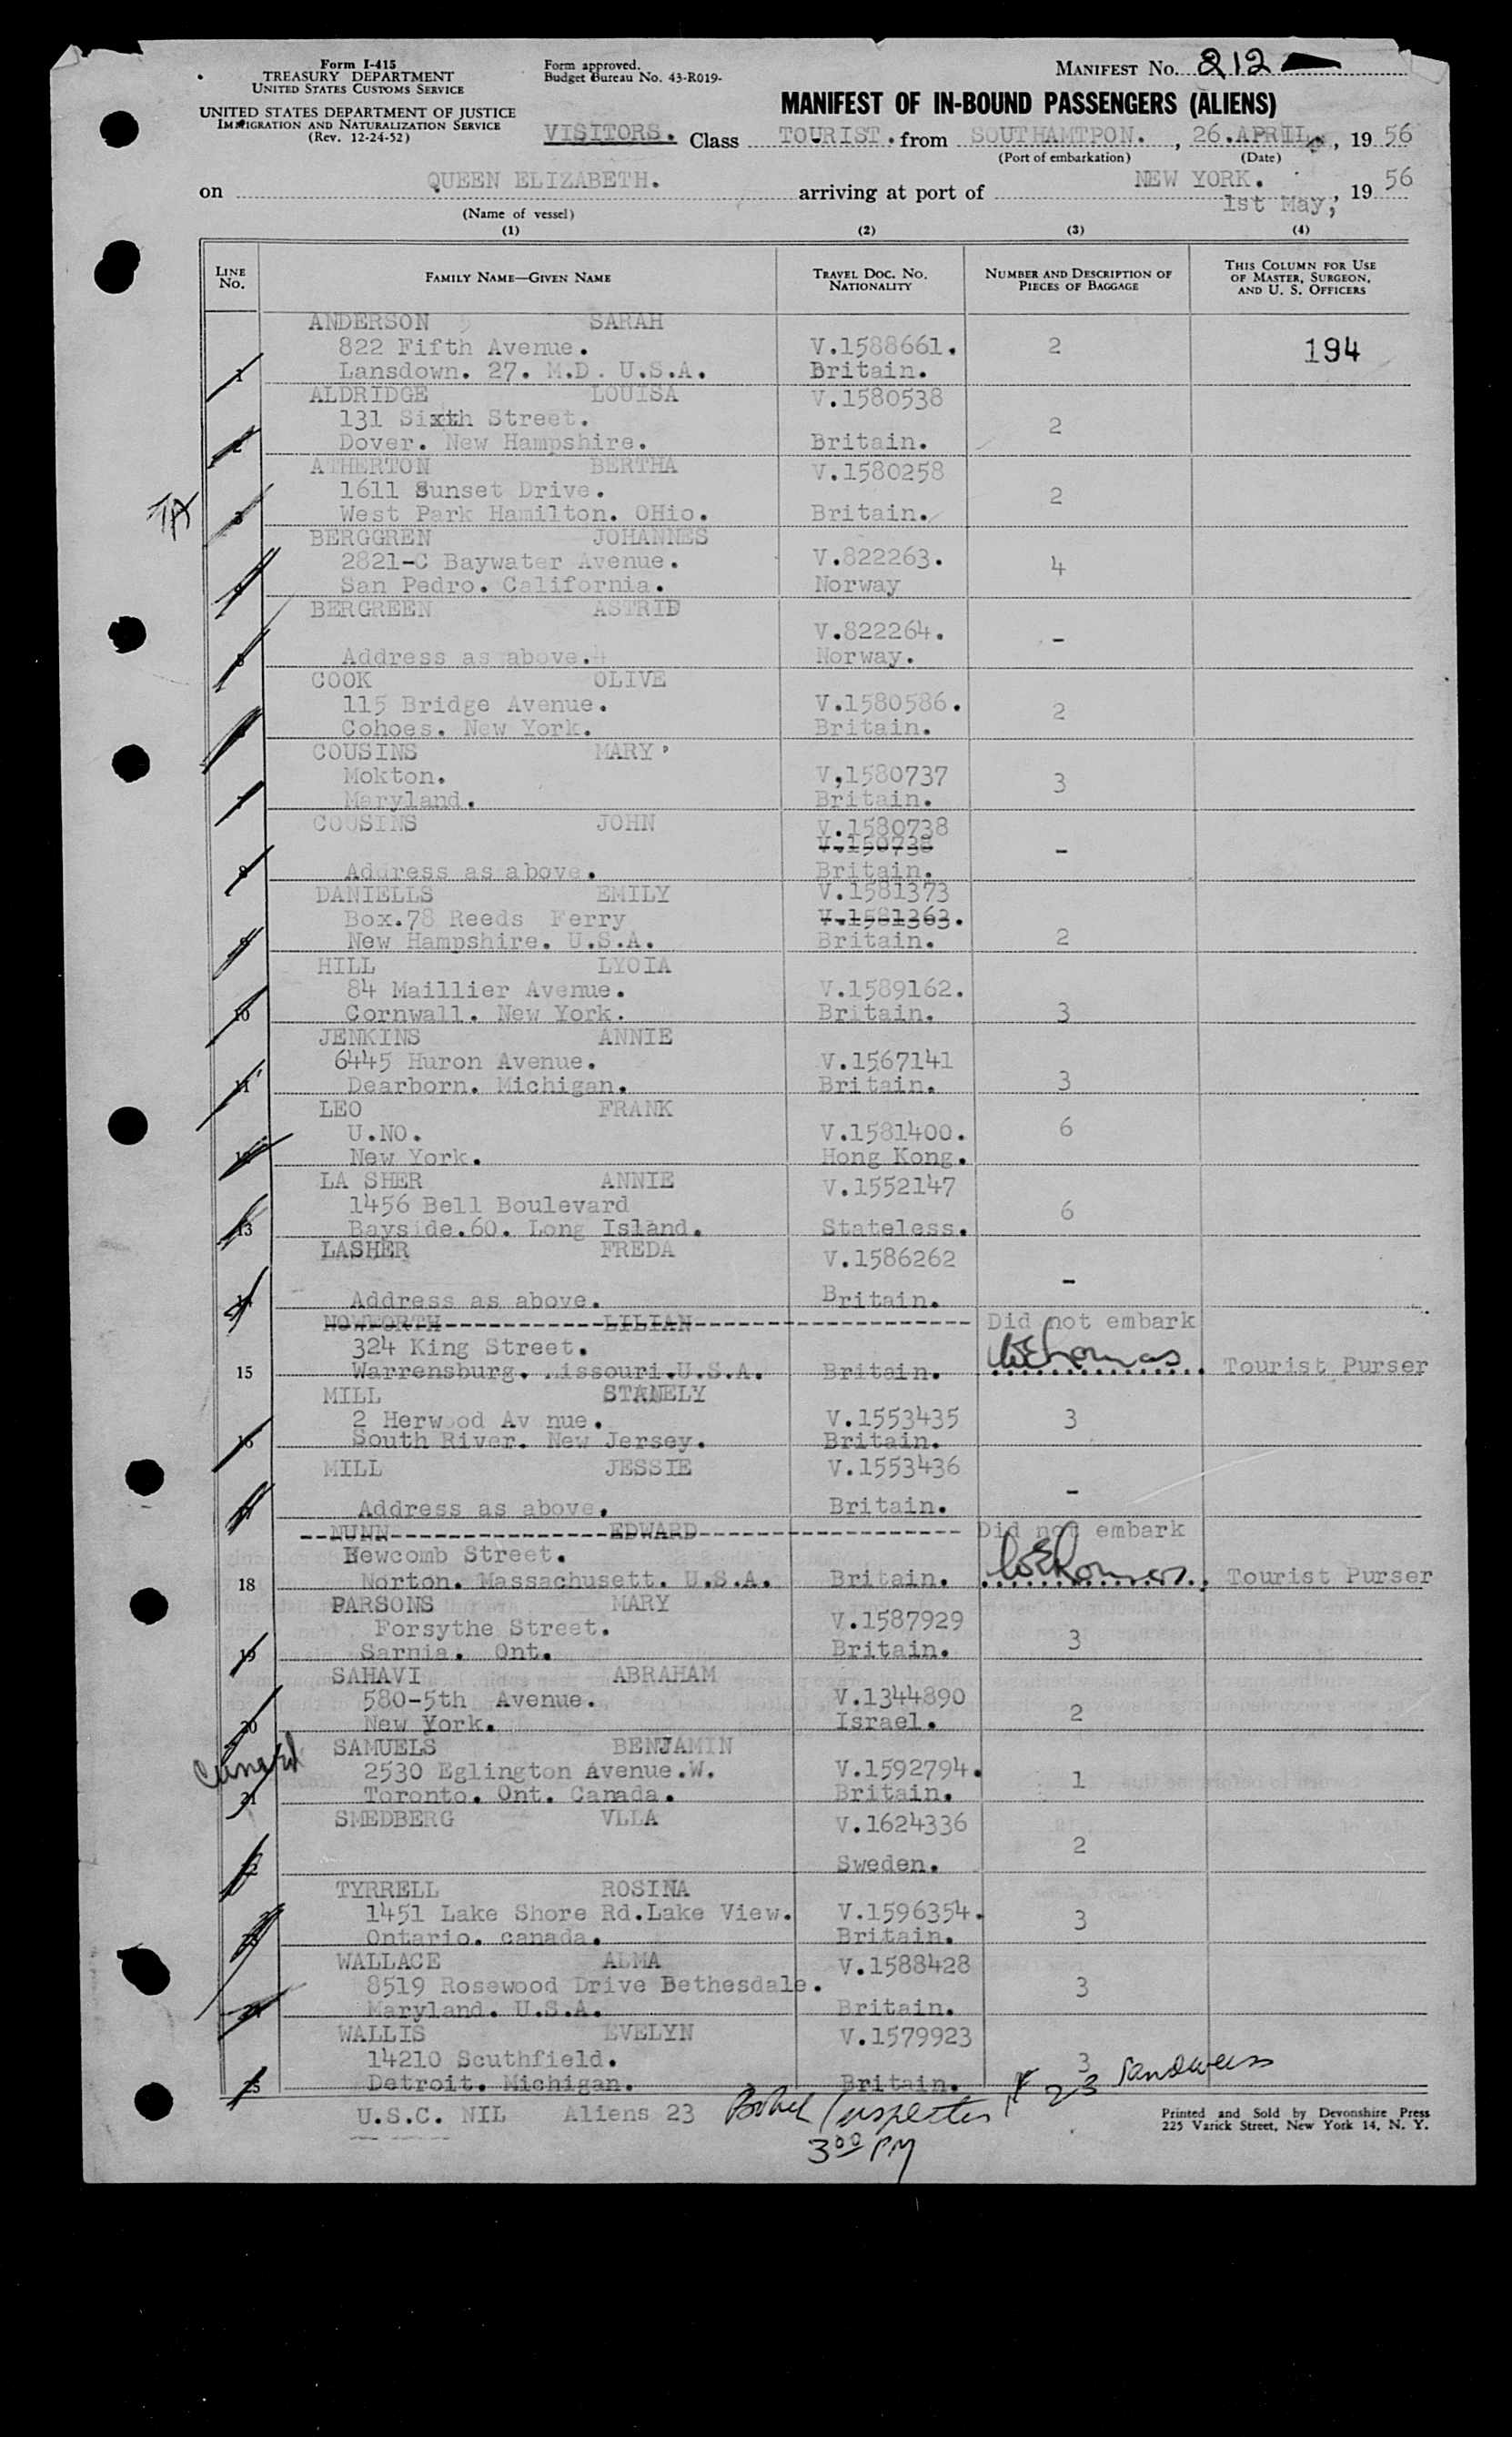 Form I-415
TREASURY DEPARTMENT
UNITED STATES CUSTOMS SERVICE
UNITED STATES DEPARTMENT OF JUSTICE
IMMIGRATION AND NATURALIZATION SERVICE
(Rev. 12-24-52)
Form approved.
Budget Bureau No. 43-R019-
MANIFEST NO. 212
MANIFEST OF IN-BOUND PASSENGERS (ALIENS)
VISITORS. Class TOURIST. from SOUTHAMTPON. , 26.APRIL. , 19 56
(Port of embarkation) (Date)
on QUEEN ELIZABETH. arriving at port of NEW YORK. 1st May, , 19 56
(Name of vessel)
(1) (2) (3) (4)
LINE NO. FAMILY NAME—GIVEN NAME TRAVEL DOC. NO. NATIONALITY NUMBER AND DESCRIPTION OF PIECES OF BAGGAGE THIS COLUMN FOR USE OF MASTER, SURGEON, AND U. S. OFFICERS
ANDERSON SARAH
822 Fifth Avenue. V.1588661. 2 194
1 Lansdown. 27. M.D. U.S.A. Britain.
ALDRIDGE LOUISA V.1580538
131 Sixth Street. 2
2 Dover. New Hampshire. Britain.
ATHERTON BERTHA V.1580258
1611 Sunset Drive. 2
3 West Park Hamilton. OHio. Britain.
BERGGREN JOHANNES
2821-C Baywater Avenue. V.822263. 4
4 San Pedro. California. Norway
BERGREEN ASTRID
V.822264. -
5 Address as above. Norway.
COOK OLIVE
115 Bridge Avenue. V.1580586. 2
6 Cohoes. New York. Britain.
COUSINS MARY
Mokton. V,1580737 3
7 Maryland. Britain.
COUSINS JOHN V.1580738
V.150738 -
8 Address as above. Britain.
DANIELLS EMILY V.1581373
Box.78 Reeds Ferry V.1581363.
9 New Hampshire. U.S.A. Britain. 2
HILL LYOIA
84 Maillier Avenue. V.1589162.
10 Cornwall. New York. Britain. 3
JENKINS ANNIE
6445 Huron Avenue. V.1567141
11 Dearborn. Michigan. Britain. 3
LEO FRANK
U.NO. V.1581400. 6
12 New York. Hong Kong.
LA SHER ANNIE V.1552147
1456 Bell Boulevard 6
13 Bayside.60. Long Island. Stateless.
LASHER FREDA V.1586262
-
14 Address as above. Britain.
NOWFORTH LILIAN Did not embark
324 King Street.
15 Warrensburg. .issouri.U.S.A. Britain. Tourist Purser
MILL STANELY
2 Herwood Av nue. V.1553435 3
16 South River. New Jersey. Britain.
MILL JESSIE V.1553436
-
17 Address as above. Britain.
NUNN EDWARD Did not embark
Newcomb Street.
18 Norton. Massachusett. U.S.A. Britain. Tourist Purser
PARSONS MARY
Forsythe Street. V.1587929 3
19 Sarnia. Ont. Britain.
SAHAVI ABRAHAM
580-5th Avenue. V.1344890 2
20 New York. Israel.
SAMUELS BENJAMIN
2530 Eglington Avenue.W. V.1592794. 1
21 Toronto. Ont. Canada. Britain.
SMEDBERG VLLA V.1624336
2
22 Sweden.
TYRRELL ROSINA
1451 Lake Shore Rd.Lake View. V.1596354. 3
23 Ontario. canada. Britain.
WALLACE ALMA V.1588428
8519 Rosewood Drive Bethesdale. 3
24 Maryland. U.S.A. Britain.
WALLIS EVELYN V.1579923
14210 Southfield. 3
25 Detroit. Michigan. Britain.
U.S.C. NIL Aliens 23 23
3 00 PM
Printed and Sold by Devonshire Press
225 Varick Street, New York 14, N. Y.